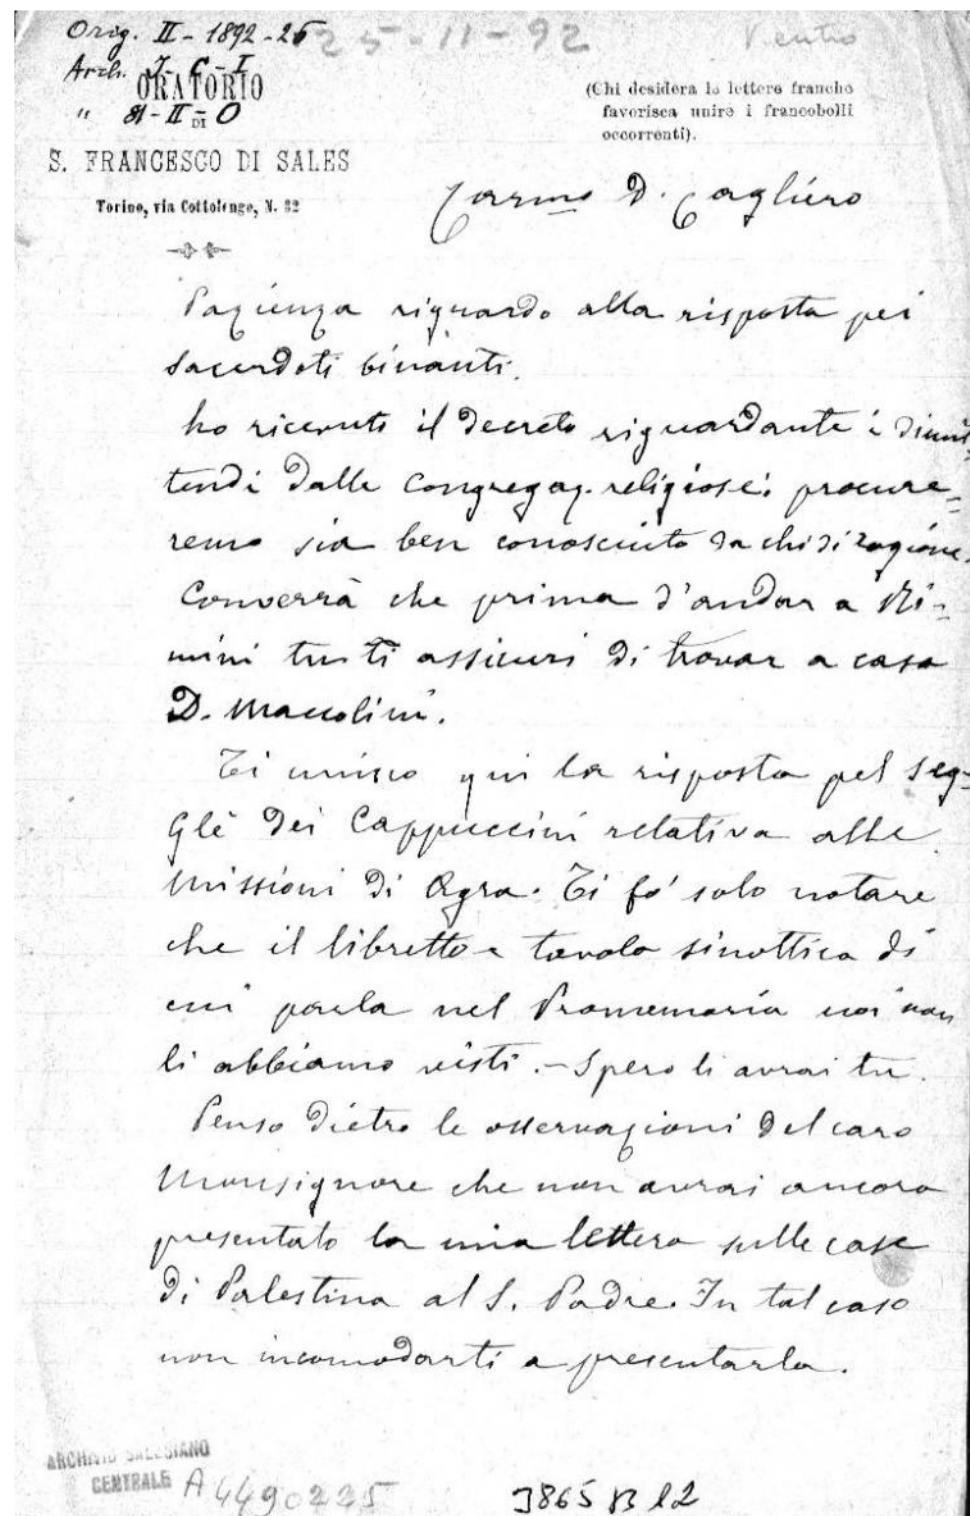 Orig. II - 1892 - 25
25-11-92
Arch. I - C - I
ORATORIO
" 81-II-0
DI
S. FRANCESCO DI SALES
Torino, via Cottolengo, N. 32
(Chi desidera le lettere franche
favorisca unire i francobolli
occorrenti).
Carmo D. Cagliero
Pazienza riguardo alla risposta pei
sacerdoti binanti.
ho ricevuto il decreto riguardante i dimit-
tendi dalle Congregaz. religiose; procure=
remo sia ben conosciuto da chi di ragione.
Converrà che prima d'andar a Ri-
mini tu ti assicuri di trovar a casa
D. Maccolini.
Ti unisco qui la risposta pel Seg-
Gle dei Cappuccini relativa alle
missioni di Agra. Ti fo' solo notare
che il libretto e tavola sinottica di
cui parla nel Promemoria noi non
li abbiamo visti. - Spero li avrai tu.
Penso dietro le osservazioni del caro
Monsignore che non avrai ancora
presentato la mia lettera sulle case
di Palestina al S. Padre. In tal caso
non incomodarti a presentarla.
ARCHIVIO SALESIANO
CENTRALE
A4490225
3865 B 12